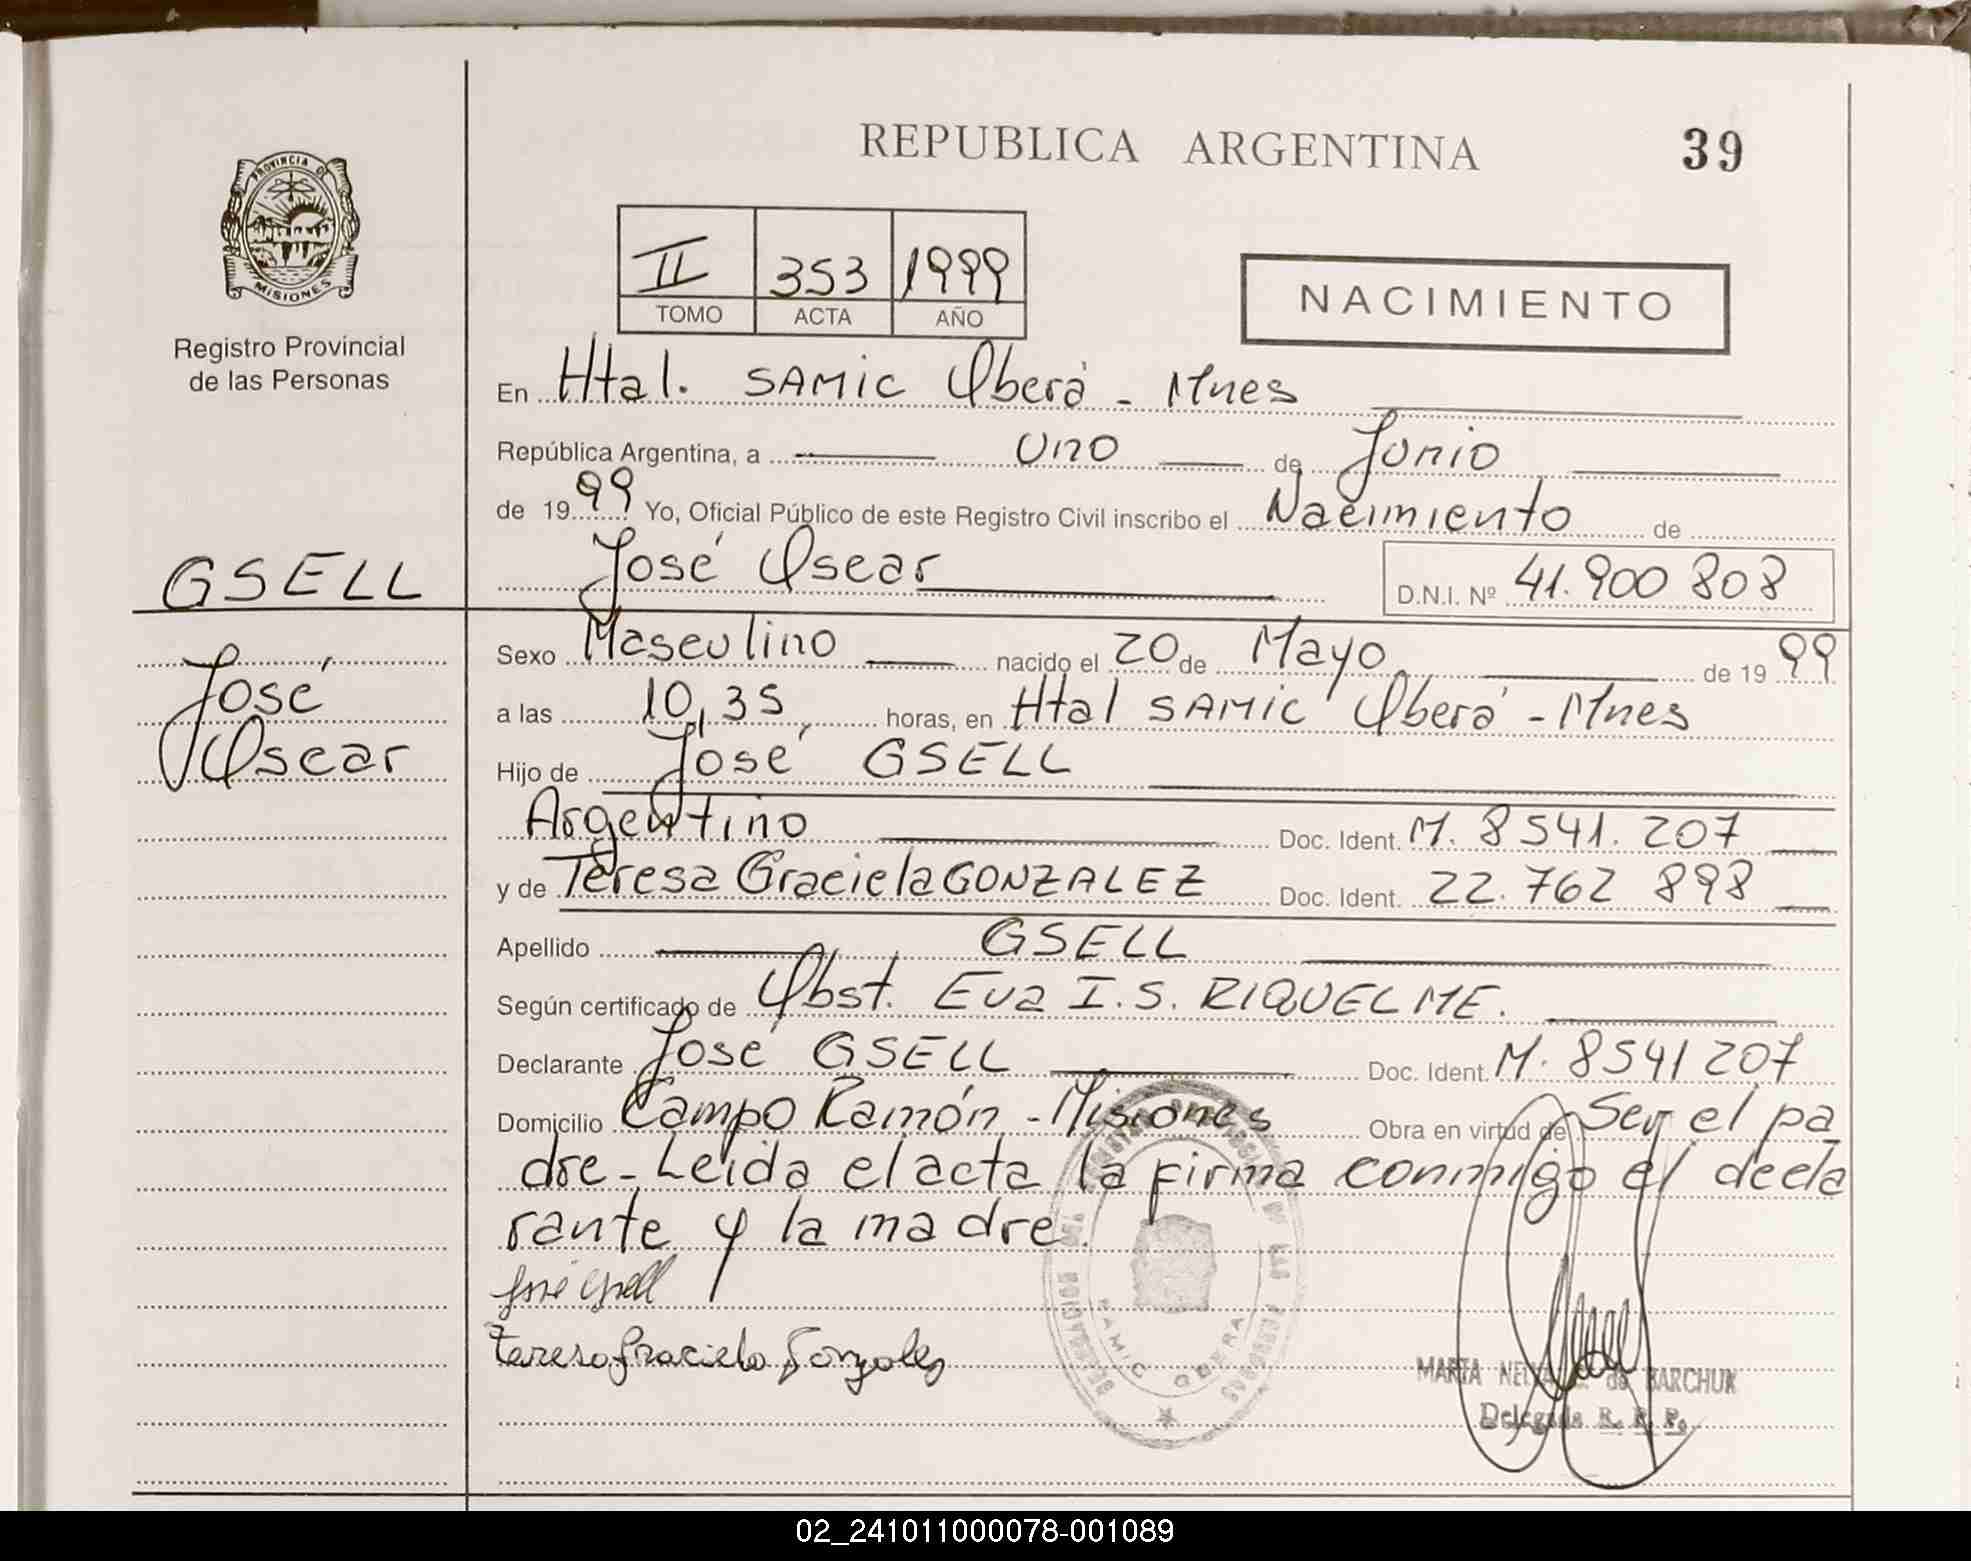 REPUBLICA ARGENTINA 39
PROVINCIA DE
MISIONES
Registro Provincial
de las Personas
II 353 1999
TOMO ACTA AÑO
NACIMIENTO
En Htal. SAMIC Oberá - Mnes
República Argentina, a uno de Junio
de 1999 Yo, Oficial Público de este Registro Civil inscribo el Nacimiento de
José Oscar D.N.I. Nº 41.900 808
GSELL
José
Oscar
Sexo Masculino nacido el 20 de Mayo de 1999
a las 10,35, horas, en Htal SAMIC Oberá - Mnes
Hijo de José GSELL
Argentino Doc. Ident. M. 8541.207
y de Teresa Graciela GONZALEZ Doc. Ident. 22.762 898
Apellido GSELL
Según certificado de Obst. Eva I.S. RIQUELME.
Declarante José GSELL Doc. Ident. M. 8541207
Domicilio Campo Ramón - Misiones Obra en virtud de Ser el pa
dre - Leida el acta la firma conmigo el decla
rante y la madre.
José Gsell
Teresa Graciela Gonzales
SAMIC OBERA
MARTA de BARCHUK
Delegada R. P. P.
02_241011000078-001089